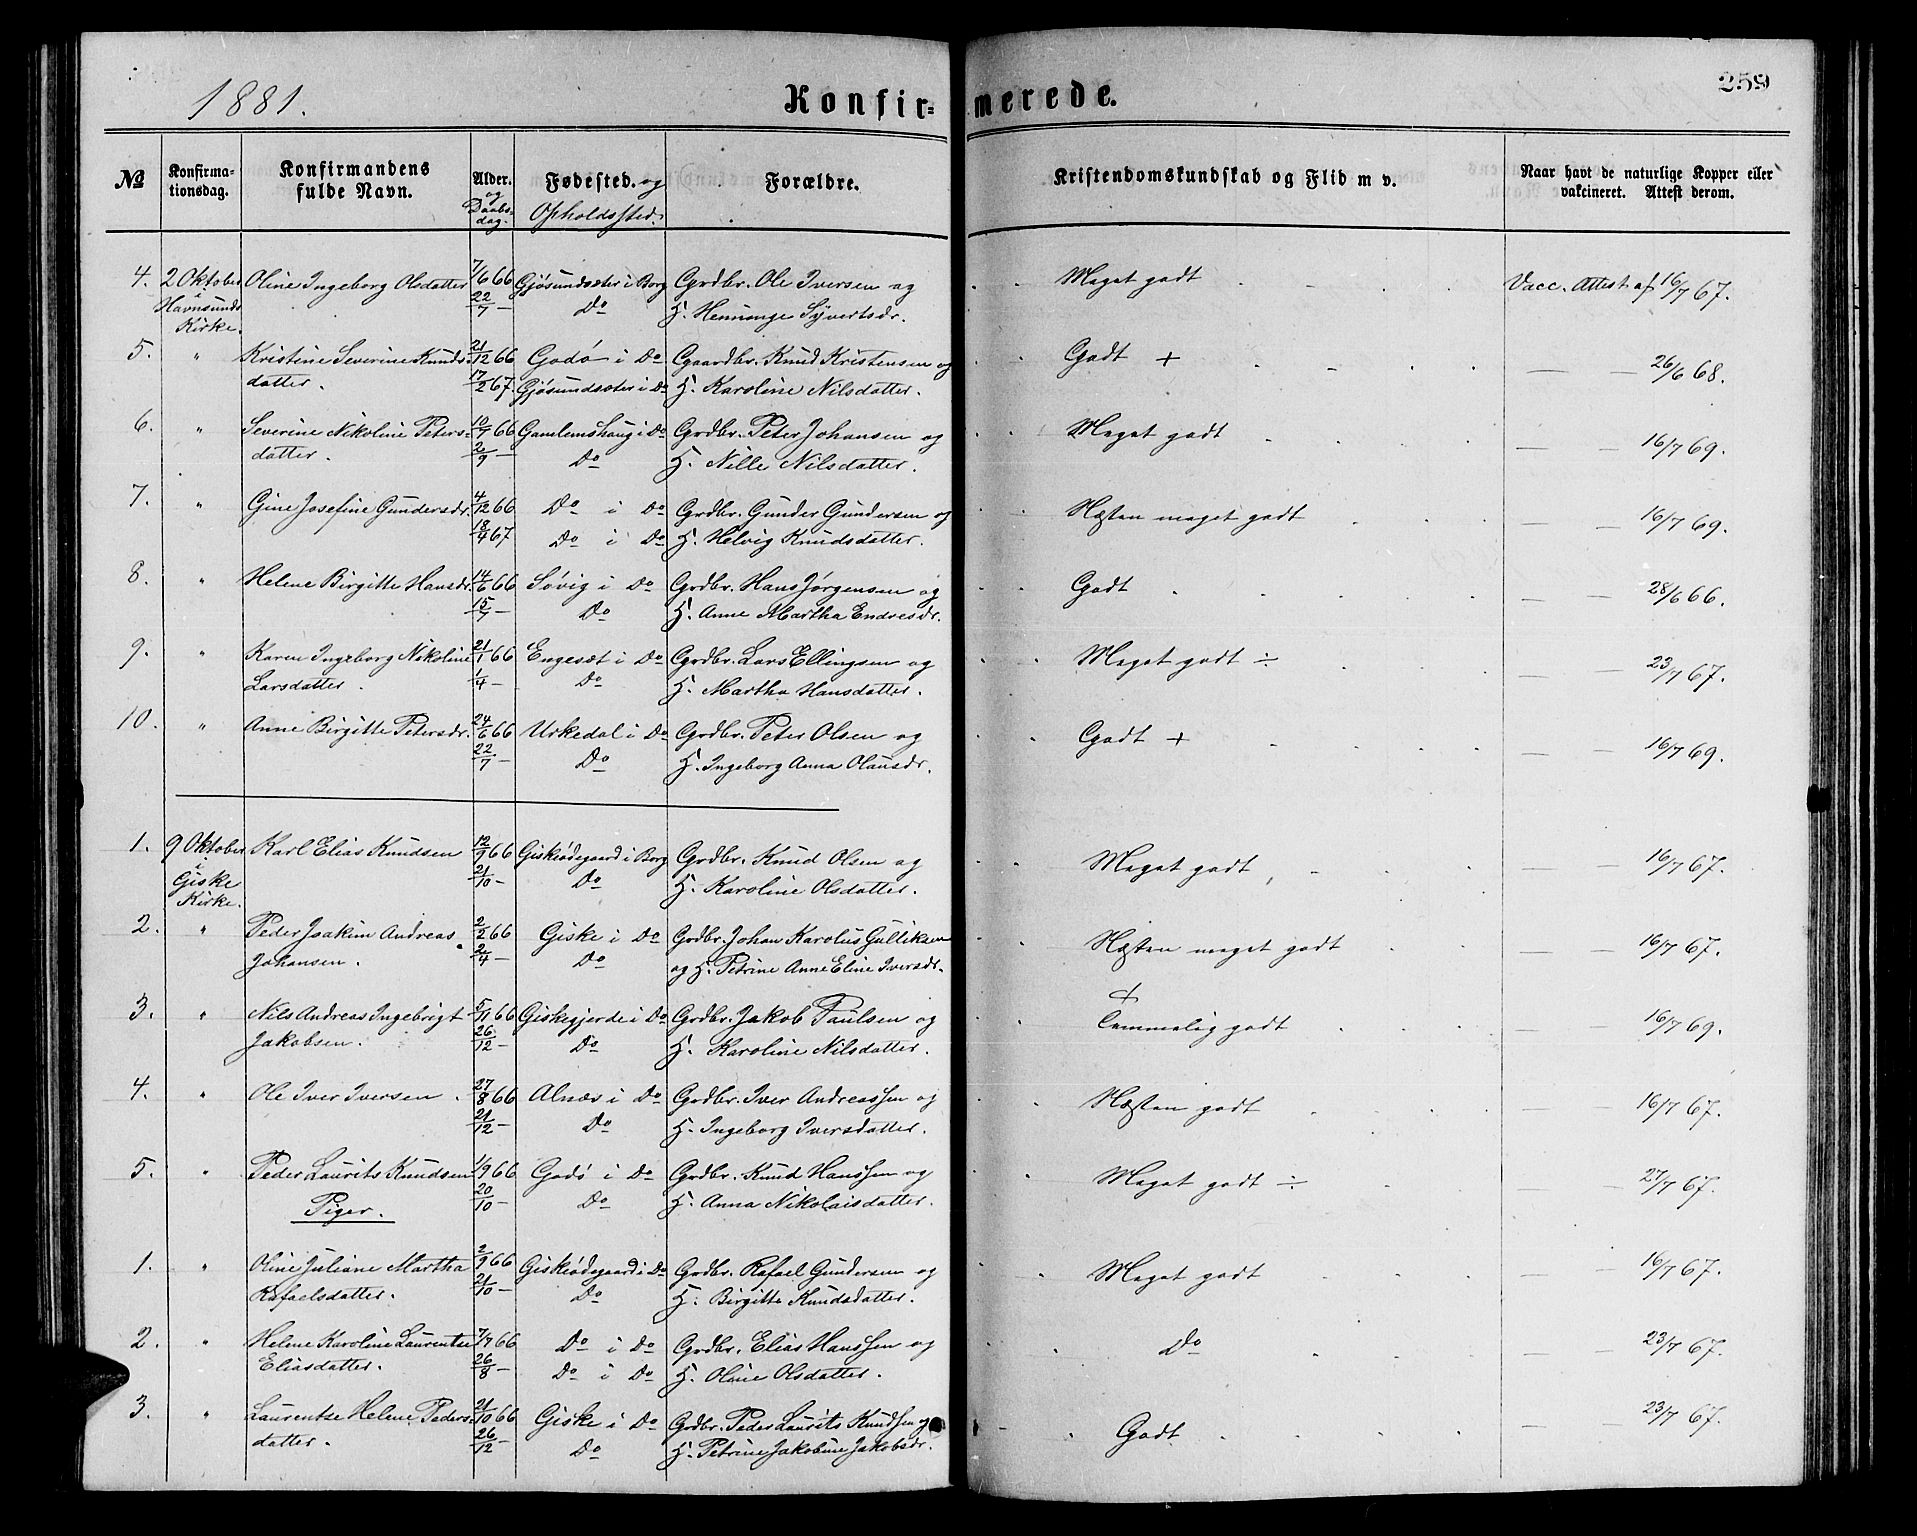 1881. Konfir- merede. 259
№ Konfirma-tionsdag. Konfirmandens fulde Navn. Alder. og Daabs-dag. Fødested. og Opholdssted. Forældre. Kristendomskundskab og Flid m v. Naar havt de naturlige Kopper eller vakcineret. Attest derom.
4. 2 Oktober Oline Ingeborg Olsdatter 7/6 66 Gjøsundsæter i Borg Grdbr. Ole Iversen og Meget godt Vacc. Attest af 16/7 67.
i Havnsunds Kirke. 22/7 — Do H. Henninge Syvertsdr.
5. " Kristine Severine Knuds- 21/12 66 Godø i Do Gaardbr. Knud Kristensen og Godt + — — 26/6 68.
datter. 17/2 67 Gjøsundsæter i Do H. Karoline Nilsdatter.
6. " Severine Nikoline Peters- 10/7 66 Gamlemshaug i Do Grdbr. Peter Johansen og Meget godt — — 16/7 69.
datter. 2/9 — Do H. Nille Nilsdatter.
7. " Gine Josefine Gundersdr. 4/12 66 Do i Do Grdbr. Gunder Gundersen og Næsten meget godt — — 16/7 69.
18/4 67 Do i Do H. Helvig Knudsdatter.
8. " Helene Birgitte Hansdr. 14/6 66 Søvig i Do Grdbr. Hans Jørgensen og Godt — — 28/6 66.
15/7 — Do H. Anne Martha Endresdr.
9. " Karen Ingeborg Nikoline 21/1 66 Engesæt i Do Grdbr. Lars Ellingsen og Meget godt ÷ — — 23/7 67.
Larsdatter. 1/4 — Do H. Martha Hansdatter.
10. " Anne Birgitte Petersdr. 24/6 66 Urkedal i Do Grdbr. Peter Olsen og Godt + — — 16/7 69.
22/7 — Do H. Ingeborg Anna Olausdr.
1. 9 Oktober Karl Elias Knudsen 12/9 66 Giskeødegaard i Borg Grdbr. Knud Olsen og Meget godt — — 16/7 67.
i Giske Kirke. 21/10 — Do H. Karoline Olsdatter.
2. " Peder Joakim Andreas 2/2 66 Giske i Do Grdbr. Johan Karolus Gulliksen Næsten meget godt — — 16/7 67.
Johansen. 2/4 — Do og H. Petrine Anne Eline Iversdr.
3. " Nils Andreas Ingebrigt 5/11 66 Giskegjerde i Do Grdbr. Jakob Paulsen og + Temmelig godt — — 16/7 69.
Jakobsen. 26/12 — Do H. Karoline Nilsdatter.
4. " Ole Iver Iversen. 27/8 66 Alnæs i Do Grdbr. Iver Andreassen og Næsten godt — — 16/7 67.
21/12 — Do H. Ingeborg Iversdatter.
5. " Peder Laurits Knudsen 1/9 66 Godø i Do Grdbr. Knud Hanssen og Meget godt ÷ — — 27/7 67.
Piger. 20/10 — Do H. Anna Nikolaisdatter.
1. " Oline Juliane Martha 2/9 66 Giskeødegaard i Do Grdbr. Rafael Gundersen og Meget godt — — 16/7 67.
Rafaelsdatter. 21/10 — Do H. Birgitte Knudsdatter.
2. " Helene Karoline Laurentse 7/7 66 Do i Do Grdbr. Elias Hanssen og Do — — 23/7 67.
Eliasdatter. 26/8 Do i Do H. Oline Olsdatter.
3. " Laurentse Helene Peders- 21/10 66 Giske i Do Grdbr. Peder Laurits Knudsen og Godt — — 23/7 67.
datter. 26/12 — Do H. Petrine Jakobine Jakobsdr.